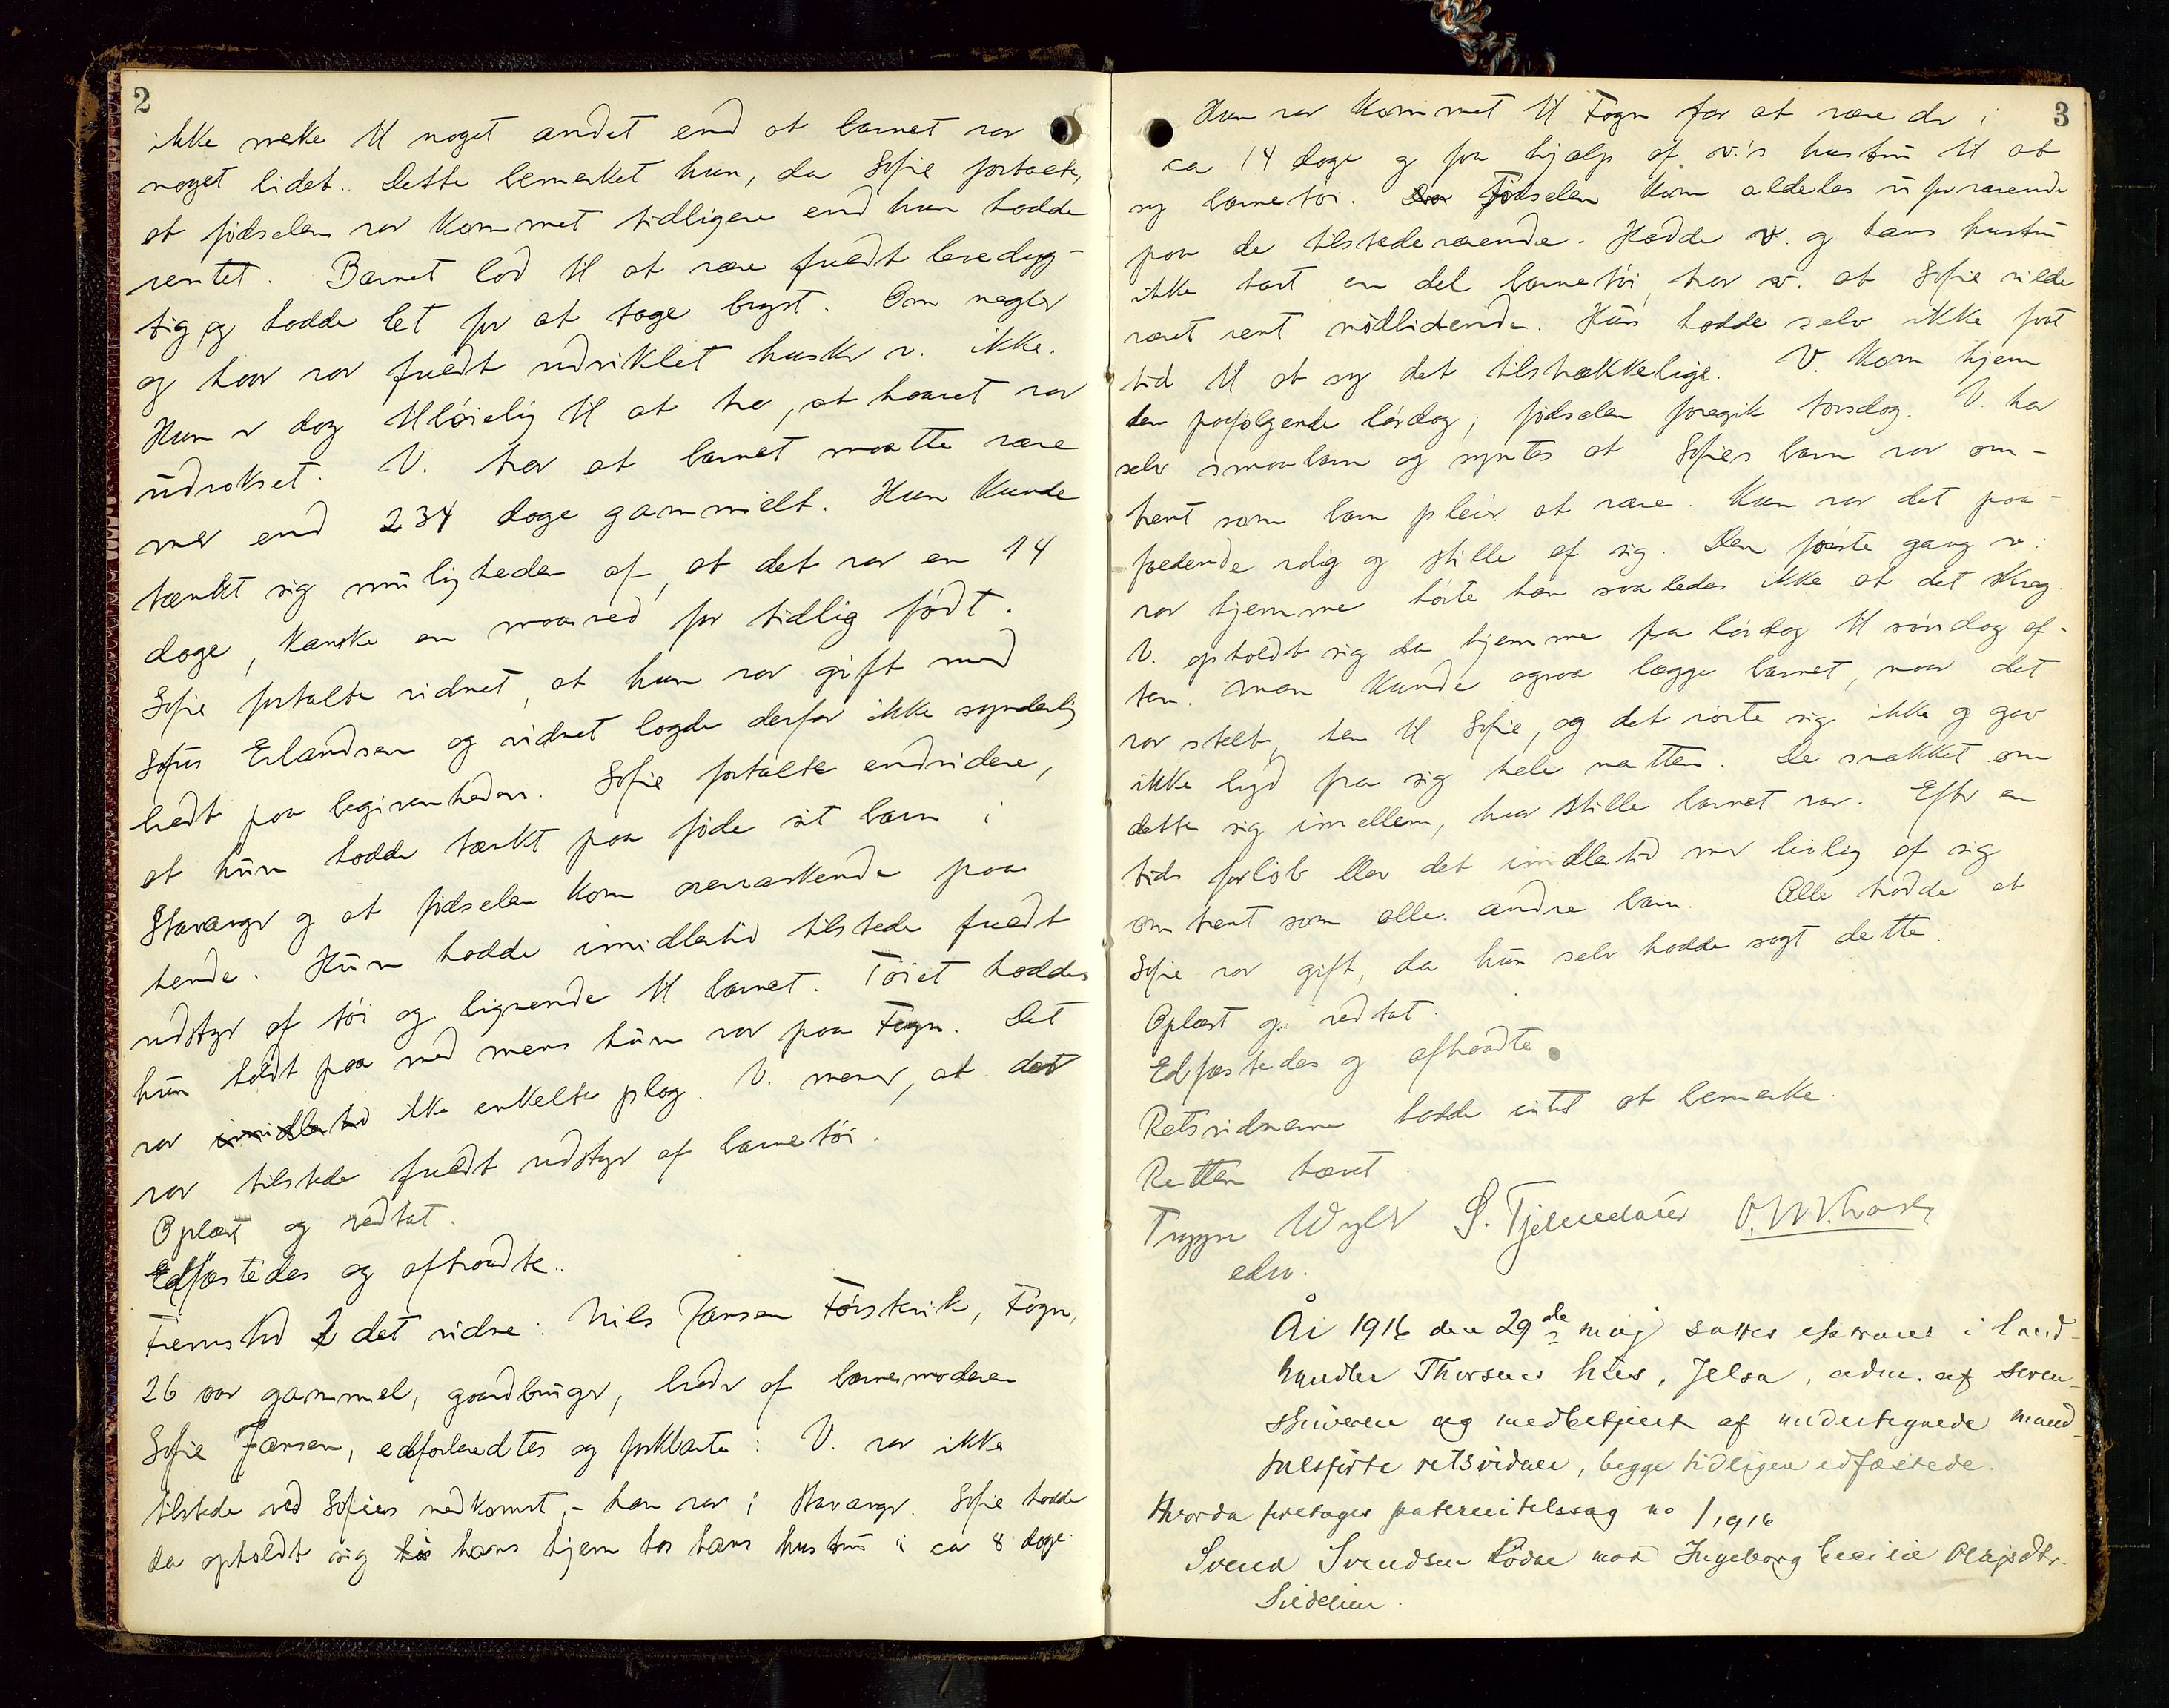 2
ikke merke til noget andet end at barnet var
noget lidet. Dette bemerket hun, da Sofie fortalte,
at fødselen var kommet tidligere end hun hadde
ventet. Barnet lod til at være fuldt levedyg-
tig og hadde let for at tage bryst. Om negler
og haar var fuldt udviklet husker v. ikke.
Hun er dog tilbøielig til at tro, at haaret var
udvokset. V. tror at barnet maatte være
mer end 234 dage gammelt. Hun kunde
tænkt sig muligheden af, at det var en 14
dage, kanske en maaned for tidlig født.
Sofie fortalte vidnet, at hun var gift med
Sofus Erlandsen og vidnet lagde derfor ikke synderlig
vedt paa begivenheden. Sofie fortalte endvidere,
at hun hadde tænkt paa føde sit barn i
Stavanger og at fødselen kom overraskende paa
hende. Hun hadde imidlertid tilstede fuldt
udstyr af tøi og lignende til barnet. Tøiet hadde
hun holdt paa med mens hun var paa Fogn. Det
var imidlertid ikke enkelte plag. V. mener, at det
var tilstede fuldt udstyr af barnetøi.
Oplæst og vedtat.
Edfæstedes og aftraadte.
Fremstod 2 det vidne: Nils Jansen Førsvik, Fogn,
26 aar gammel, gaardbruger, broder af barnemoderen
Sofie Jansen, edforberedtes og forklarte: V. var ikke
tilstede ved Sofies nedkomst, - han var i Stavanger. Sofie hadde
da opholdt sig hos hans hjem hos hans hustru i ca 8 dage.
3
Hun var kommet til Fogn for at være der i
ca 14 dage og faa hjælp af v.'s hustru til at
sy barnetøi. Da Fødselen kom aldeles uforvarende
paa de tilstedeværende. Hadde v. og hans hustru
ikke havt en del barnetøi, tror v. at Sofie vilde
været rent nødlidende. Hun hadde selv ikke faat
tid til at sy det tilstrækkelige. V. kom hjem
den paafølgende lørdag; fødselen foregik torsdag. V. har
selv smaabarn og syntes at Sofies barn var om-
trent som barn pleier at være. Kun var det paa-
faldende rolig og stille af sig. Den første gang v.
var hjemme hørte han saaledes ikke at det skreg.
V. opholdt sig da hjemme fra lørdag til søndag af-
ten. Man kunde ogsaa lægge barnet, naar det
var stelt, hen til Sofie, og det rørte sig ikke og gav
ikke lyd fra sig hele natten. De snakket om
dette sig imellem, hvor stille barnet var. Efter en
tids forløb blev det imidlertid mer livlig af sig
omtrent som alle andre barn. Alle trodde at
Sofie var gift, da hun selv hadde sagt dette.
Oplæst og vedtat.
Edfæstedes og aftraadte.
Retsvidnerne hadde intet at bemerke.
Retten hævet.
Trygve Wyller S. Tjelmeland
edsv.
År 1916 den 29de maj sattes extraret i land-
handler Thorsens hus, Jelsa, adm. af soren-
skriveren og medbetjent af undertegnede mand-
talsførte retsvidner, begge tidligere edfæstede.
Hvorda foretages paternitetssag no 1/1916
Svend Svendsen mod Ingeborg Cecilie Olajsdtr.